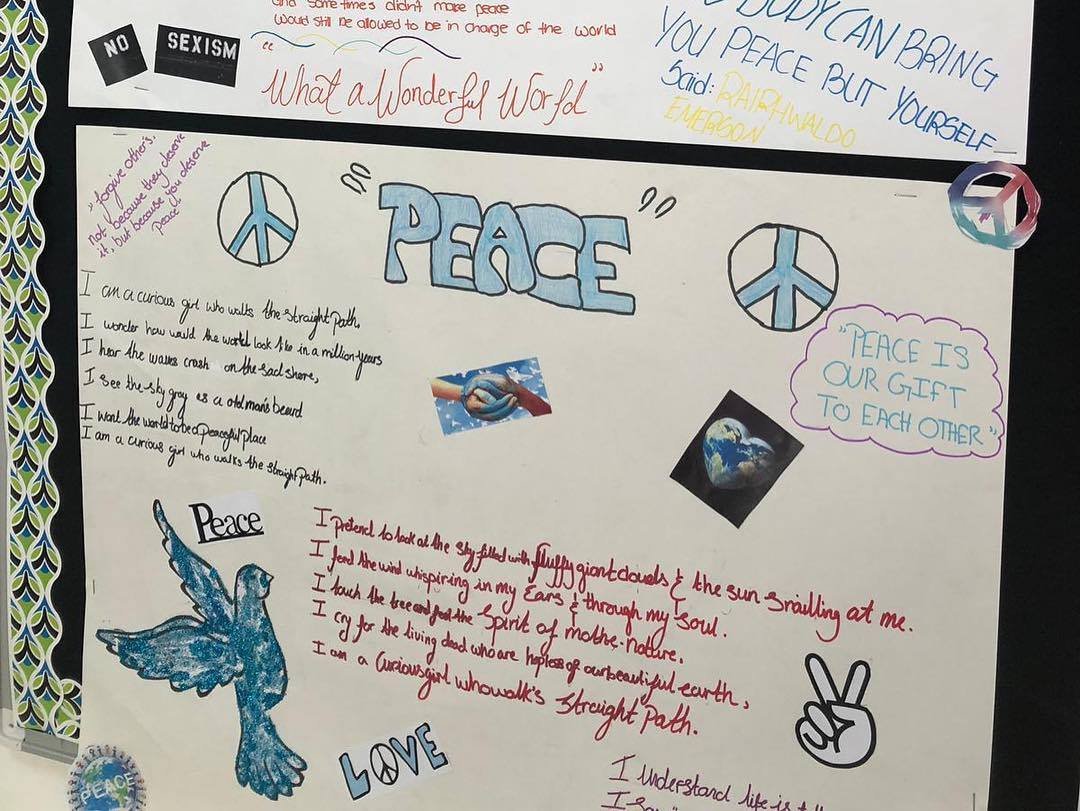 and sometimes didn't make peace
would still be allowed to be in charge of the world
NO
SEXISM
"What a Wonderful World"
BODY CAN BRING
YOU PEACE BUT YOURSELF
Said: RAIRHWALDO
EMERSON
"forgive other's,
not because they deserve
it, but because you deserve
Peace"
"PEACE"
I am a curious girl who walks the straight Path,
I wonder how would the world look like in a million years
I hear the waves crash on the sad shore,
I see the sky gray as a old man's beard
I want the world to be a peaceful place
I am a curious girl who walks the straight Path.
"PEACE IS
OUR GIFT
TO EACH OTHER"
Peace
I pretend to look at the sky filled with fluffy giant clouds & the sun smilling at me.
I feel the wind whispiring in my Ears & through my soul.
I touch the tree and feel the Spirit of mothe-nature,
I cry for the living dead who are hopless of our beautiful earth,
I am a Curious girl who walk's Straight Path.
LOVE
PEACE
I understand life is
I Say